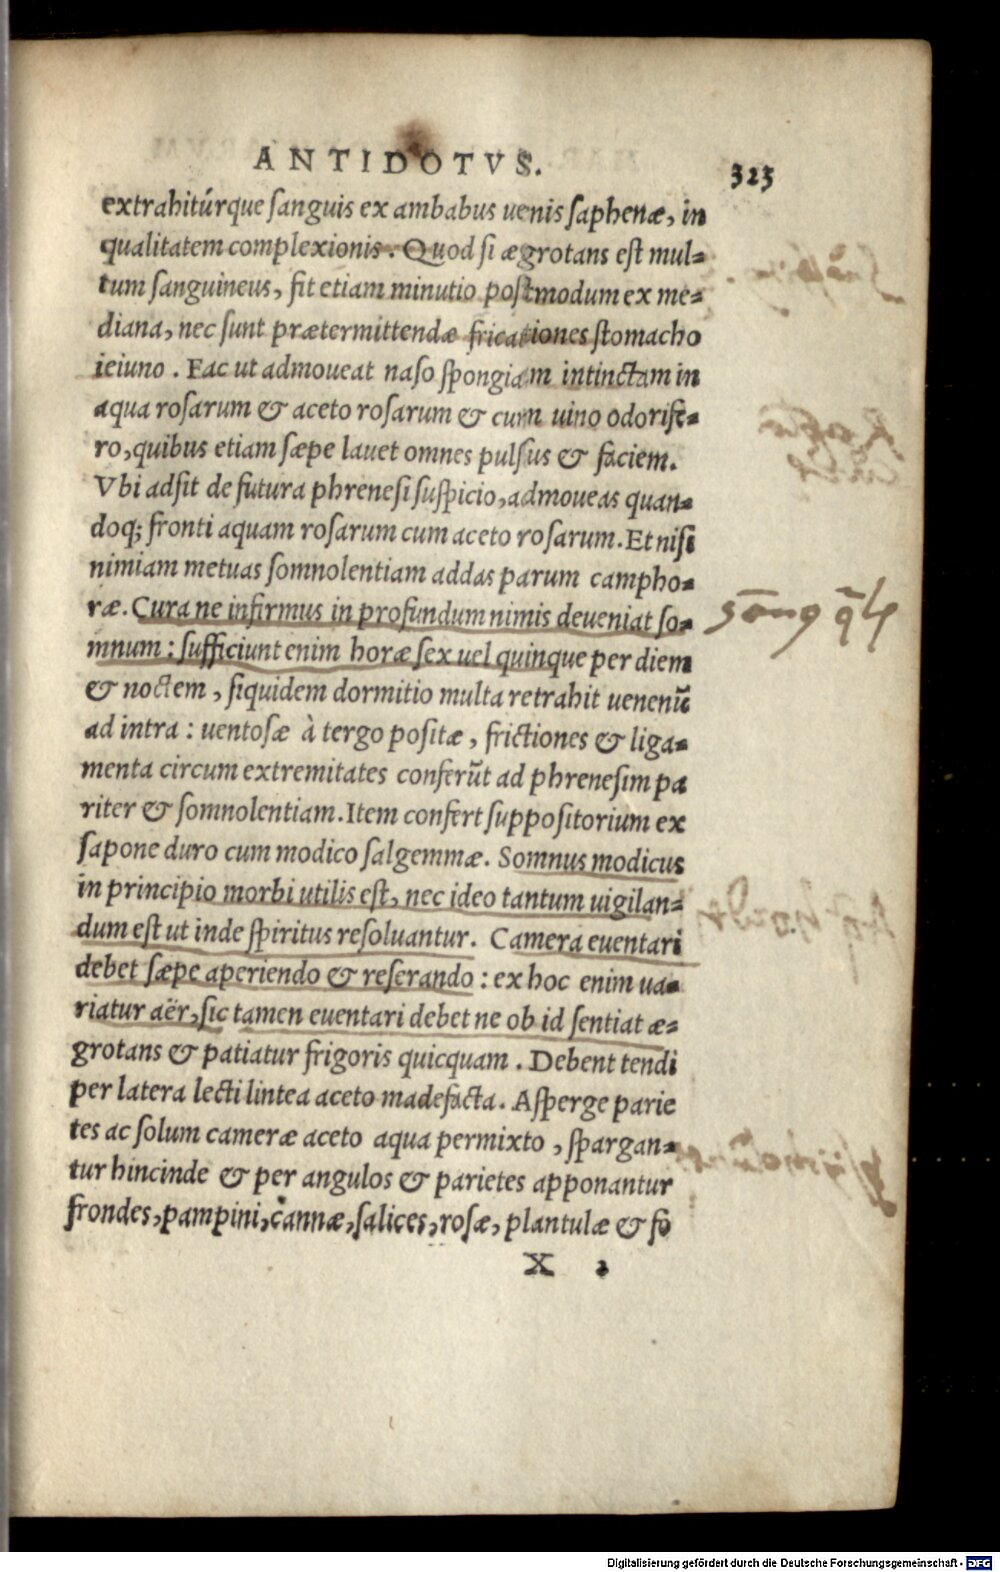 ANTIDOTVS.
323
extrahitúrque sanguis ex ambabus uenis saphenæ, in
qualitatem complexionis. Quod si ægrotans est mul=
tum sanguineus, fit etiam minutio postmodum ex me=
diana, nec sunt prætermittendæ fricationes stomacho
ieiuno. Fac ut admoueat naso spongiam intinctam in
aqua rosarum & aceto rosarum & cum uino odorife=
ro, quibus etiam sæpe lauet omnes pulsus & faciem.
Vbi adsit de futura phrenesi suspicio, admoueas quan=
doq; fronti aquam rosarum cum aceto rosarum. Et nisi
nimiam metuas somnolentiam addas parum campho=
ræ. Cura ne infirmus in profundum nimis deueniat so=
mnum: sufficiunt enim horæ sex uel quinque per diem
& noctem, siquidem dormitio multa retrahit uenenū
ad intra: uentosæ à tergo positæ, frictiones & liga=
menta circum extremitates conferūt ad phrenesim pa
riter & somnolentiam. Item confert suppositorium ex
sapone duro cum modico salgemmæ. Somnus modicus
in principio morbi utilis est, nec ideo tantum uigilan=
dum est ut inde spiritus resoluantur. Camera euentari
debet sæpe aperiendo & reserando: ex hoc enim ua=
riatur aër, sic tamen euentari debet ne ob id sentiat æ=
grotans & patiatur frigoris quicquam. Debent tendi
per latera lecti lintea aceto madefacta. Asperge parie
tes ac solum cameræ aceto aqua permixto, spargan=
tur hincinde & per angulos & parietes apponantur
frondes, pampini, cannæ, salices, rosæ, plantulæ & fo
X 2
Digitalisierung gefördert durch die Deutsche Forschungsgemeinschaft - DFG